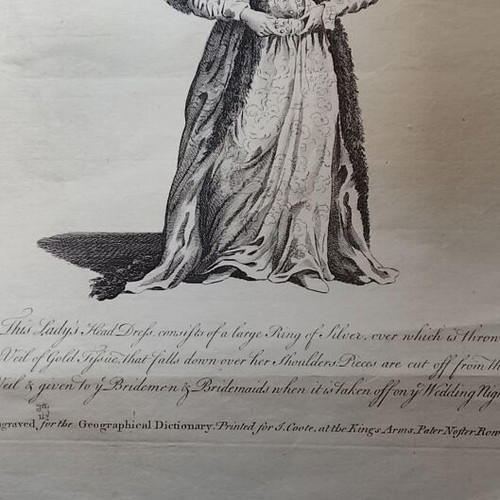 This Lady's Head Dress, consists of a large Ring of Silver, over which is thrown
Veil of Gold Tissue, that falls down over her Shoulders. Pieces are cut off from th
Veil & given to yᵉ Bridemen & Bridemaids when it is taken off on yᵉ Wedding Nigh
ngraved, for the Geographical Dictionary. Printed for J. Coote, at the King's Arms, Pater Noster Row